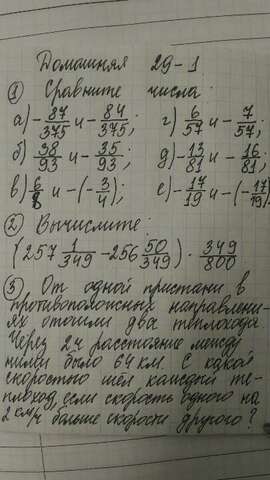 Домашняя 29-1
① Сравните числа:
а) -87/375 и -84/375; г) 6/57 и -7/57;
б) 38/93 и -35/93; д) -13/81 и -16/81;
в) 6/8 и -(-3/4); е) -17/19 и -(-17/19).
② Вычислите:
(257 1/349 - 256 50/349) · 349/800
③ От одной пристани в
противоположных направлени-
ях отошли два теплохода.
Через 2ч расстояние между
ними было 64 км. С какой
скоростью шел каждый те-
плоход, если скорость одного на
2 км/ч больше скорости другого?